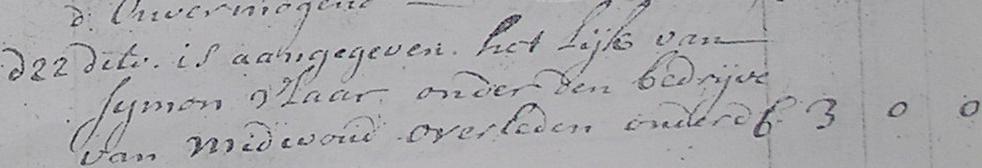 d. Onvermogend
d22 dito. is aangegeven. het Lijk van
Symon Vlaar onder den bedrijve
van midwoud overleden onder d f. 3 0 0